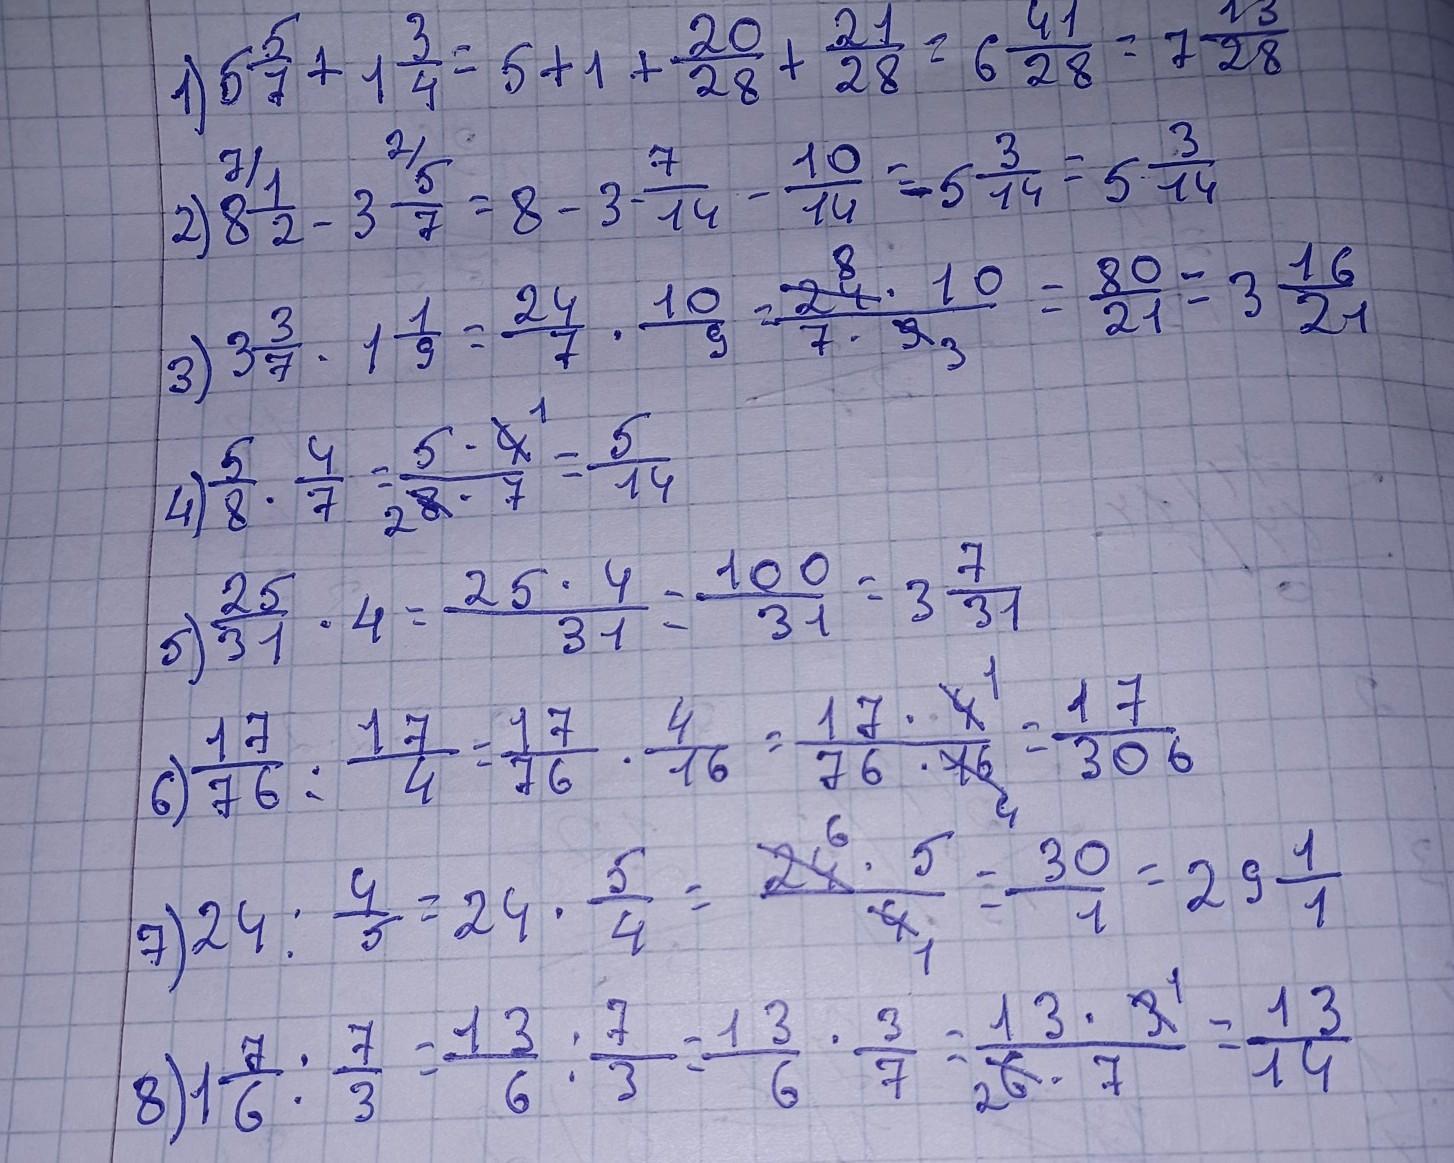 1) 5 5/7 + 1 3/4 = 5 + 1 + 20/28 + 21/28 = 6 41/28 = 7 13/28
2) 8 7/ 1/2 - 3 2/ 5/7 = 8 - 3 7/14 - 10/14 = -5 3/14 = 5 3/14
3) 3 3/7 · 1 1/9 = 24/7 · 10/9 = 24 8 · 10 / 7 · 9 3 = 80/21 = 3 16/21
4) 5/8 · 4/7 = 5 · 4 1 / 2 8 · 7 = 5/14
5) 25/31 · 4 = 25 · 4 / 31 = 100/31 = 3 7/31
6) 17/76 : 17/4 = 17/76 · 4/16 = 17 · 4 1 / 76 · 16 4 = 17/306
7) 24 : 4/5 = 24 · 5/4 = 24 6 · 5 / 4 1 = 30/1 = 29 1/1
8) 1 7/6 : 7/3 = 13/6 : 7/3 = 13/6 · 3/7 = 13 · 3 1 / 2 6 · 7 = 13/14